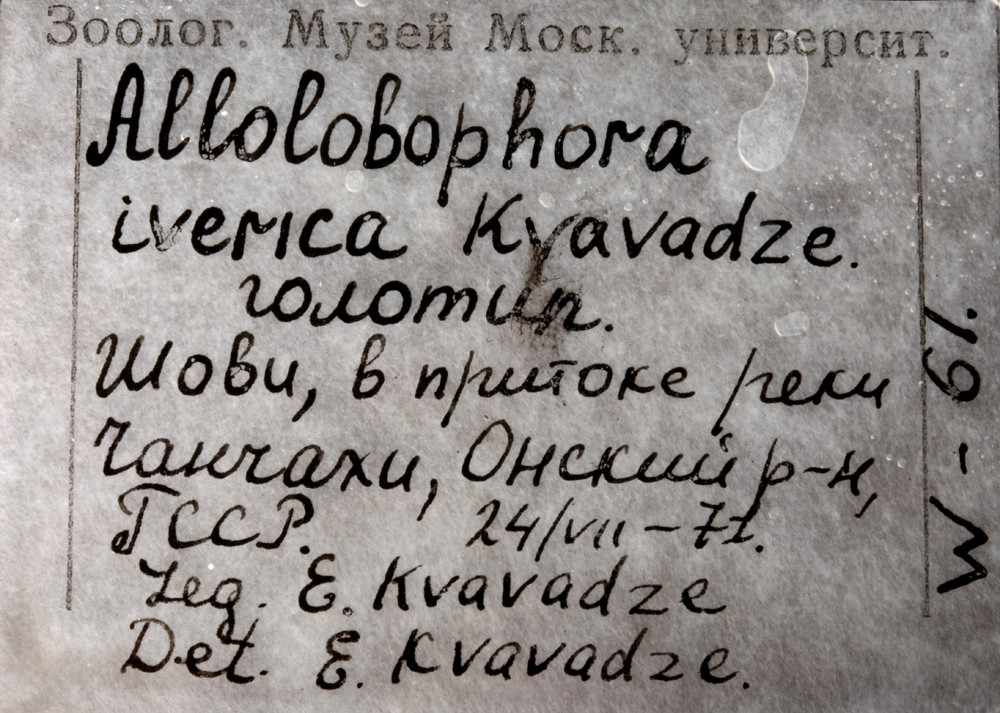 Зоолог. Музей Моск. университ.
Allolobophora
iverica Kvavadze.
голотип.
Шови, в притоке реки
Чанчахи, Онский р-н,
ГССР. 24/VII – 71.
Leg. E. Kvavadze
Det. E. Kvavadze.
W - 61.